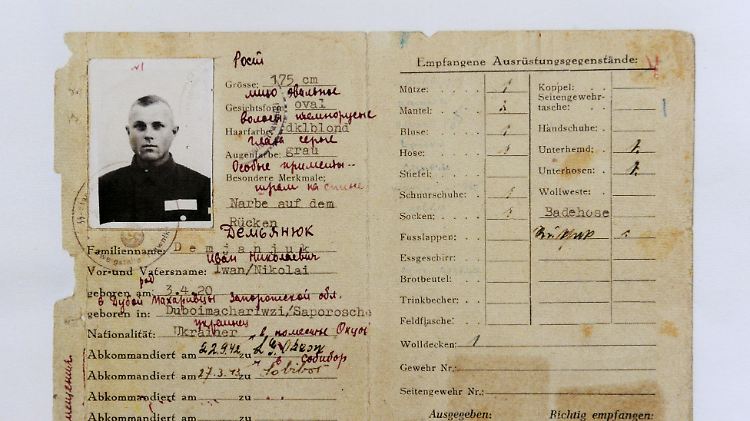 Рост
Grösse: 175 cm
лицо овальное
Gesichtsform: oval
волосы темнорусые
Haarfarbe: dklblond
глаза серые
Augenfarbe: grau
Особые приметы
Besondere Merkmale:
шрам на спине
Narbe auf dem
Rücken
Демьянюк
Familienname: Demjanjuk
Иван Николаевич
Vor- und Vatersname: Iwan/Nikolai
род
geboren am: 3.4.20
в Запорожской обл.
geboren in: Duboimachariwzi/Saporosche
украинец
Nationalität: Ukrainer
Abkommandiert am 22.9.42 zu L.G.
в Собибор
Abkommandiert am 27.3.43 zu Sobibor
Abkommandiert am zu
Abkommandiert am zu
Empfangene Ausrüstungsgegenstände:
Mütze: 1
Mantel: 1
Bluse: 1
Hose: 1
Stiefel:
Schnürschuhe: 1
Socken: 1
Fusslappen:
Essgeschirr:
Brotbeutel:
Trinkbecher:
Feldflasche:
Wolldecken: 1
Gewehr Nr.:
Seitengewehr Nr.:
Koppel:
Seitengewehr-
tasche:
Handschuhe:
Unterhemd: 1.
Unterhosen: 1.
Wollweste:
Badehose
Ausgegeben: Richtig empfangen: